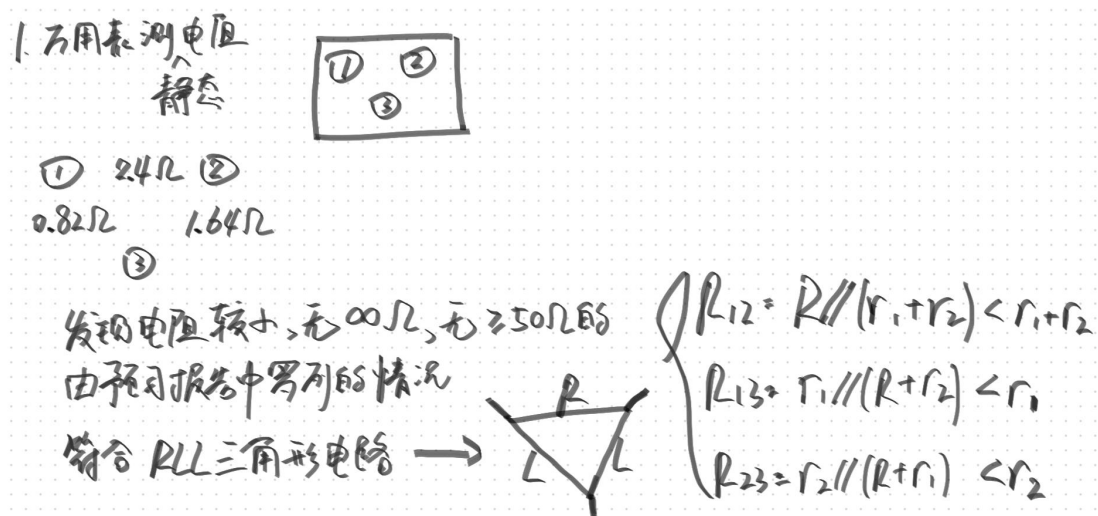 1. 万用表测电阻
静态
① ②
③
① 2.4Ω ②
0.82Ω 1.64Ω
③
发现电阻较小,无∞Ω,无≥50Ω的
由预习报告中罗列的情况
符合 RLL三角形电路 →
R
L L
R12 = R//(r1+r2) < r1+r2
R13 = r1//(R+r2) < r1
R23 = r2//(R+r1) < r2